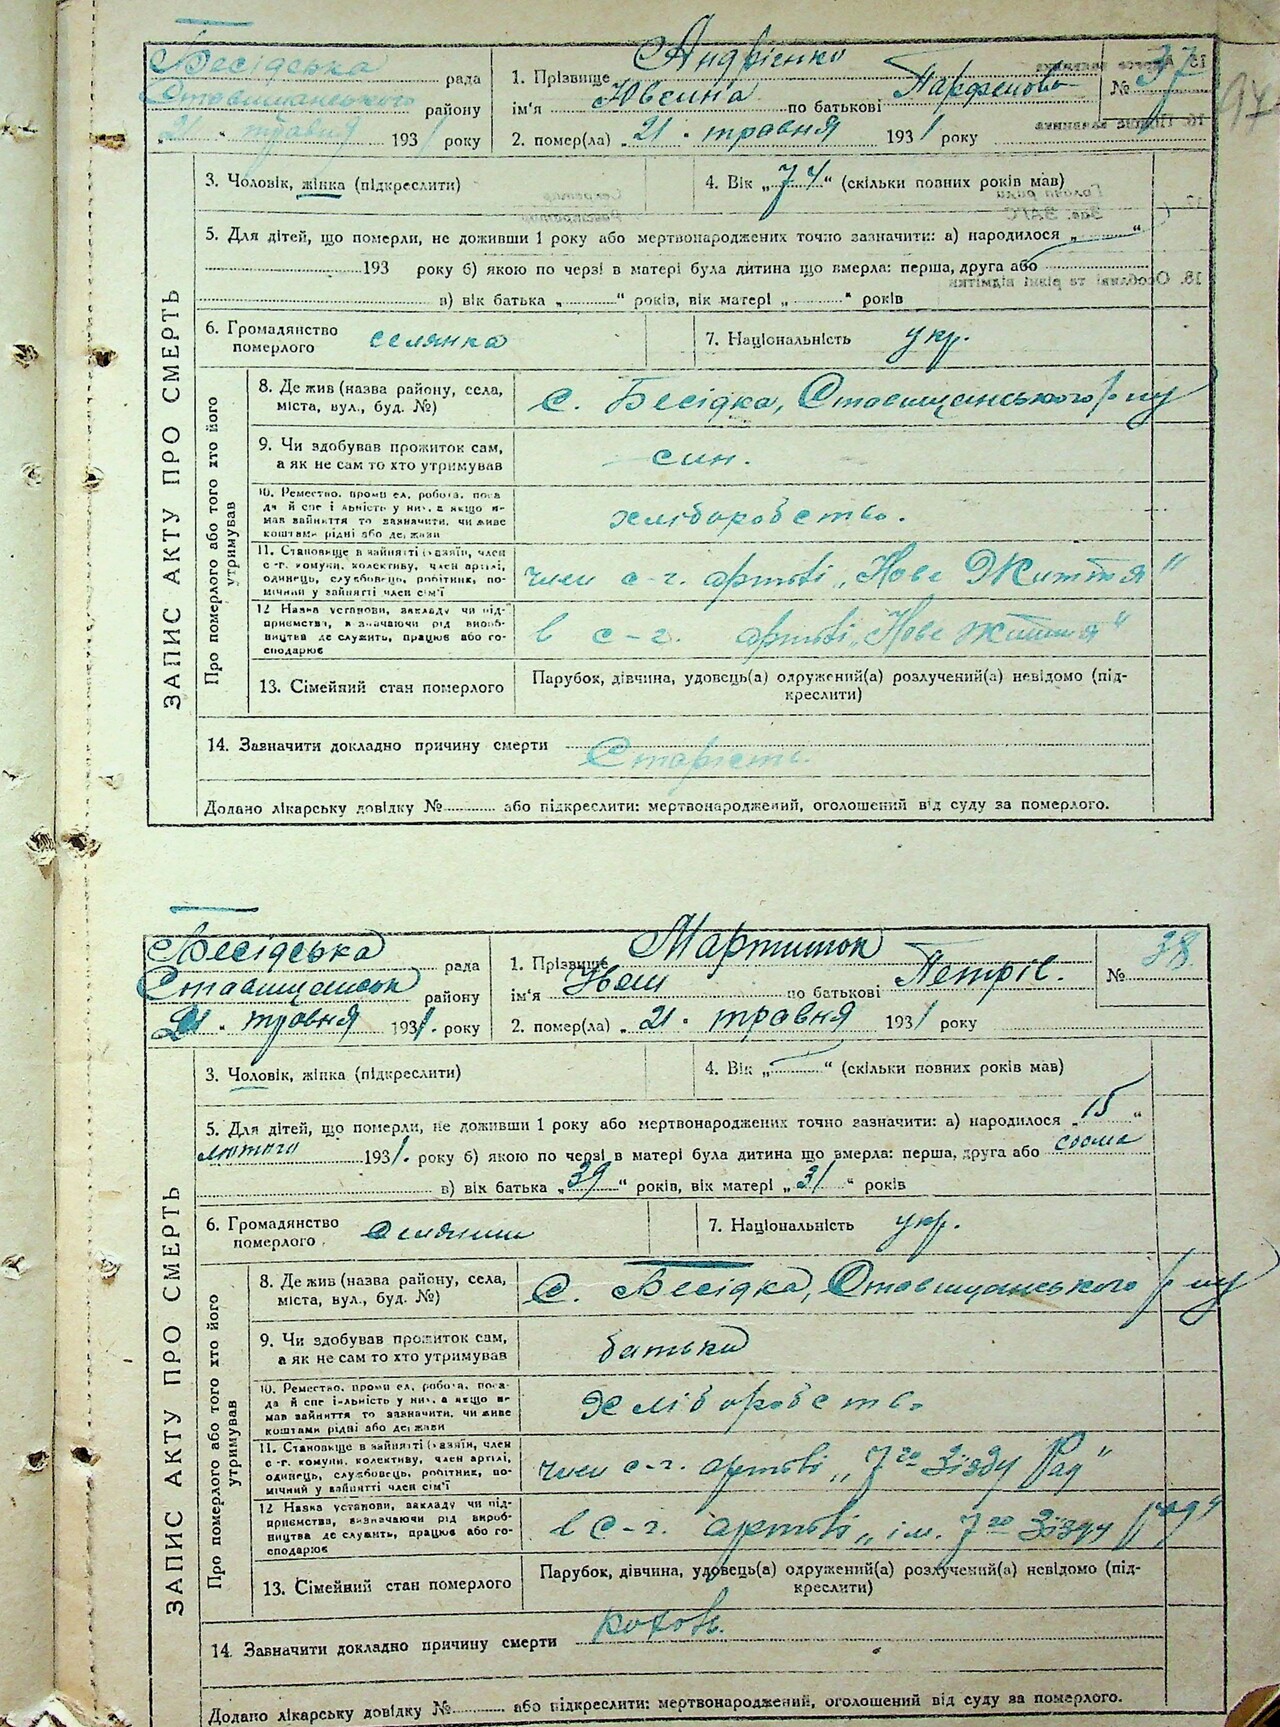 Бесідська рада
Ставищанського району
„21“ травня 1931 року
1. Прізвище Андрієнко
ім'я Ювсина по батькові Парфенова
№ 37
2. помер(ла) „21“ травня 1931 року
3. Чоловік, жінка (підкреслити)
4. Вік „74“ (скільки повних років мав)
5. Для дітей, що померли, не доживши 1 року або мертвонароджених точно зазначити: а) народилося „ “
193 року б) якою по черзі в матері була дитина що вмерла: перша, друга або
в) вік батька „ “ років, вік матері „ “ років
6. Громадянство померлого селянка
7. Національність укр.
ЗАПИС АКТУ ПРО СМЕРТЬ
Про померлого або того хто його утримував
8. Де жив (назва району, села,
міста, вул., буд. №)
с. Бесідка, Ставищанського р-ну
9. Чи здобував прожиток сам,
а як не сам то хто утримував
син.
10. Ремество, промисел, робота, поса-
да й спеціяльність у них, а якщо не
мав зайняття то зазначити, чи живе
коштами рідні або держави
хліборобство.
11. Становище в зайнятті (хазяїн, член
с-г. комуни, колективу, член артілі,
одинець, службовець, робітник, по-
мічний у зайнятті член сім'ї
член с-г. артілі „Нове Життя“
12 Назва установи, закладу чи під-
приємства, визначаючи рід вироб-
ництва де служить, працює або го-
сподарює
в с-г. артілі „Нове життя“
13. Сімейний стан померлого
Парубок, дівчина, удовець(а) одружений(а) розлучений(а) невідомо (під-
креслити)
14. Зазначити докладно причину смерти Старість.
Додано лікарську довідку № або підкреслити: мертвонароджений, оголошений від суду за померлого.
Бесідська рада
Ставищанськ району
21 „ травня 1931. року
1. Прізвище Мартинюк
ім'я Іван по батькові Петрів.
№ 38
2. помер(ла) „21“ травня 1931 року
3. Чоловік, жінка (підкреслити)
4. Вік „ “ (скільки повних років мав)
5. Для дітей, що померли, не доживши 1 року або мертвонароджених точно зазначити: а) народилося „15“
лютого 1931. року б) якою по черзі в матері була дитина що вмерла: перша, друга або сьома
в) вік батька „39“ років, вік матері „31“ років
6. Громадянство померлого. селянин
7. Національність укр.
ЗАПИС АКТУ ПРО СМЕРТЬ
Про померлого або того хто його утримував
8. Де жив (назва району, села,
міста, вул., буд. №)
с. Бесідка, Ставищанського р-ну
9. Чи здобував прожиток сам,
а як не сам то хто утримував
батько
10. Ремество, промисел, робота, поса-
да й спеціяльність у них, а якщо не
мав зайняття то зазначити, чи живе
коштами рідні або держави
хліборобство
11. Становище в зайнятті (хазяїн, член
с-г. комуни, колективу, член артілі,
одинець, службовець, робітник, по-
мічний у зайнятті член сім'ї
член с-г. артілі „7го Зізду Рад“
12 Назва установи, закладу чи під-
приємства, визначаючи рід вироб-
ництва де служить, працює або го-
сподарює
в с-г. артілі „ім. 7го Зізду Рад“
13. Сімейний стан померлого
Парубок, дівчина, удовець(а) одружений(а) розлучений(а) невідомо (під-
креслити)
14. Зазначити докладно причину смерти
Додано лікарську довідку № або підкреслити: мертвонароджений, оголошений від суду за померлого.